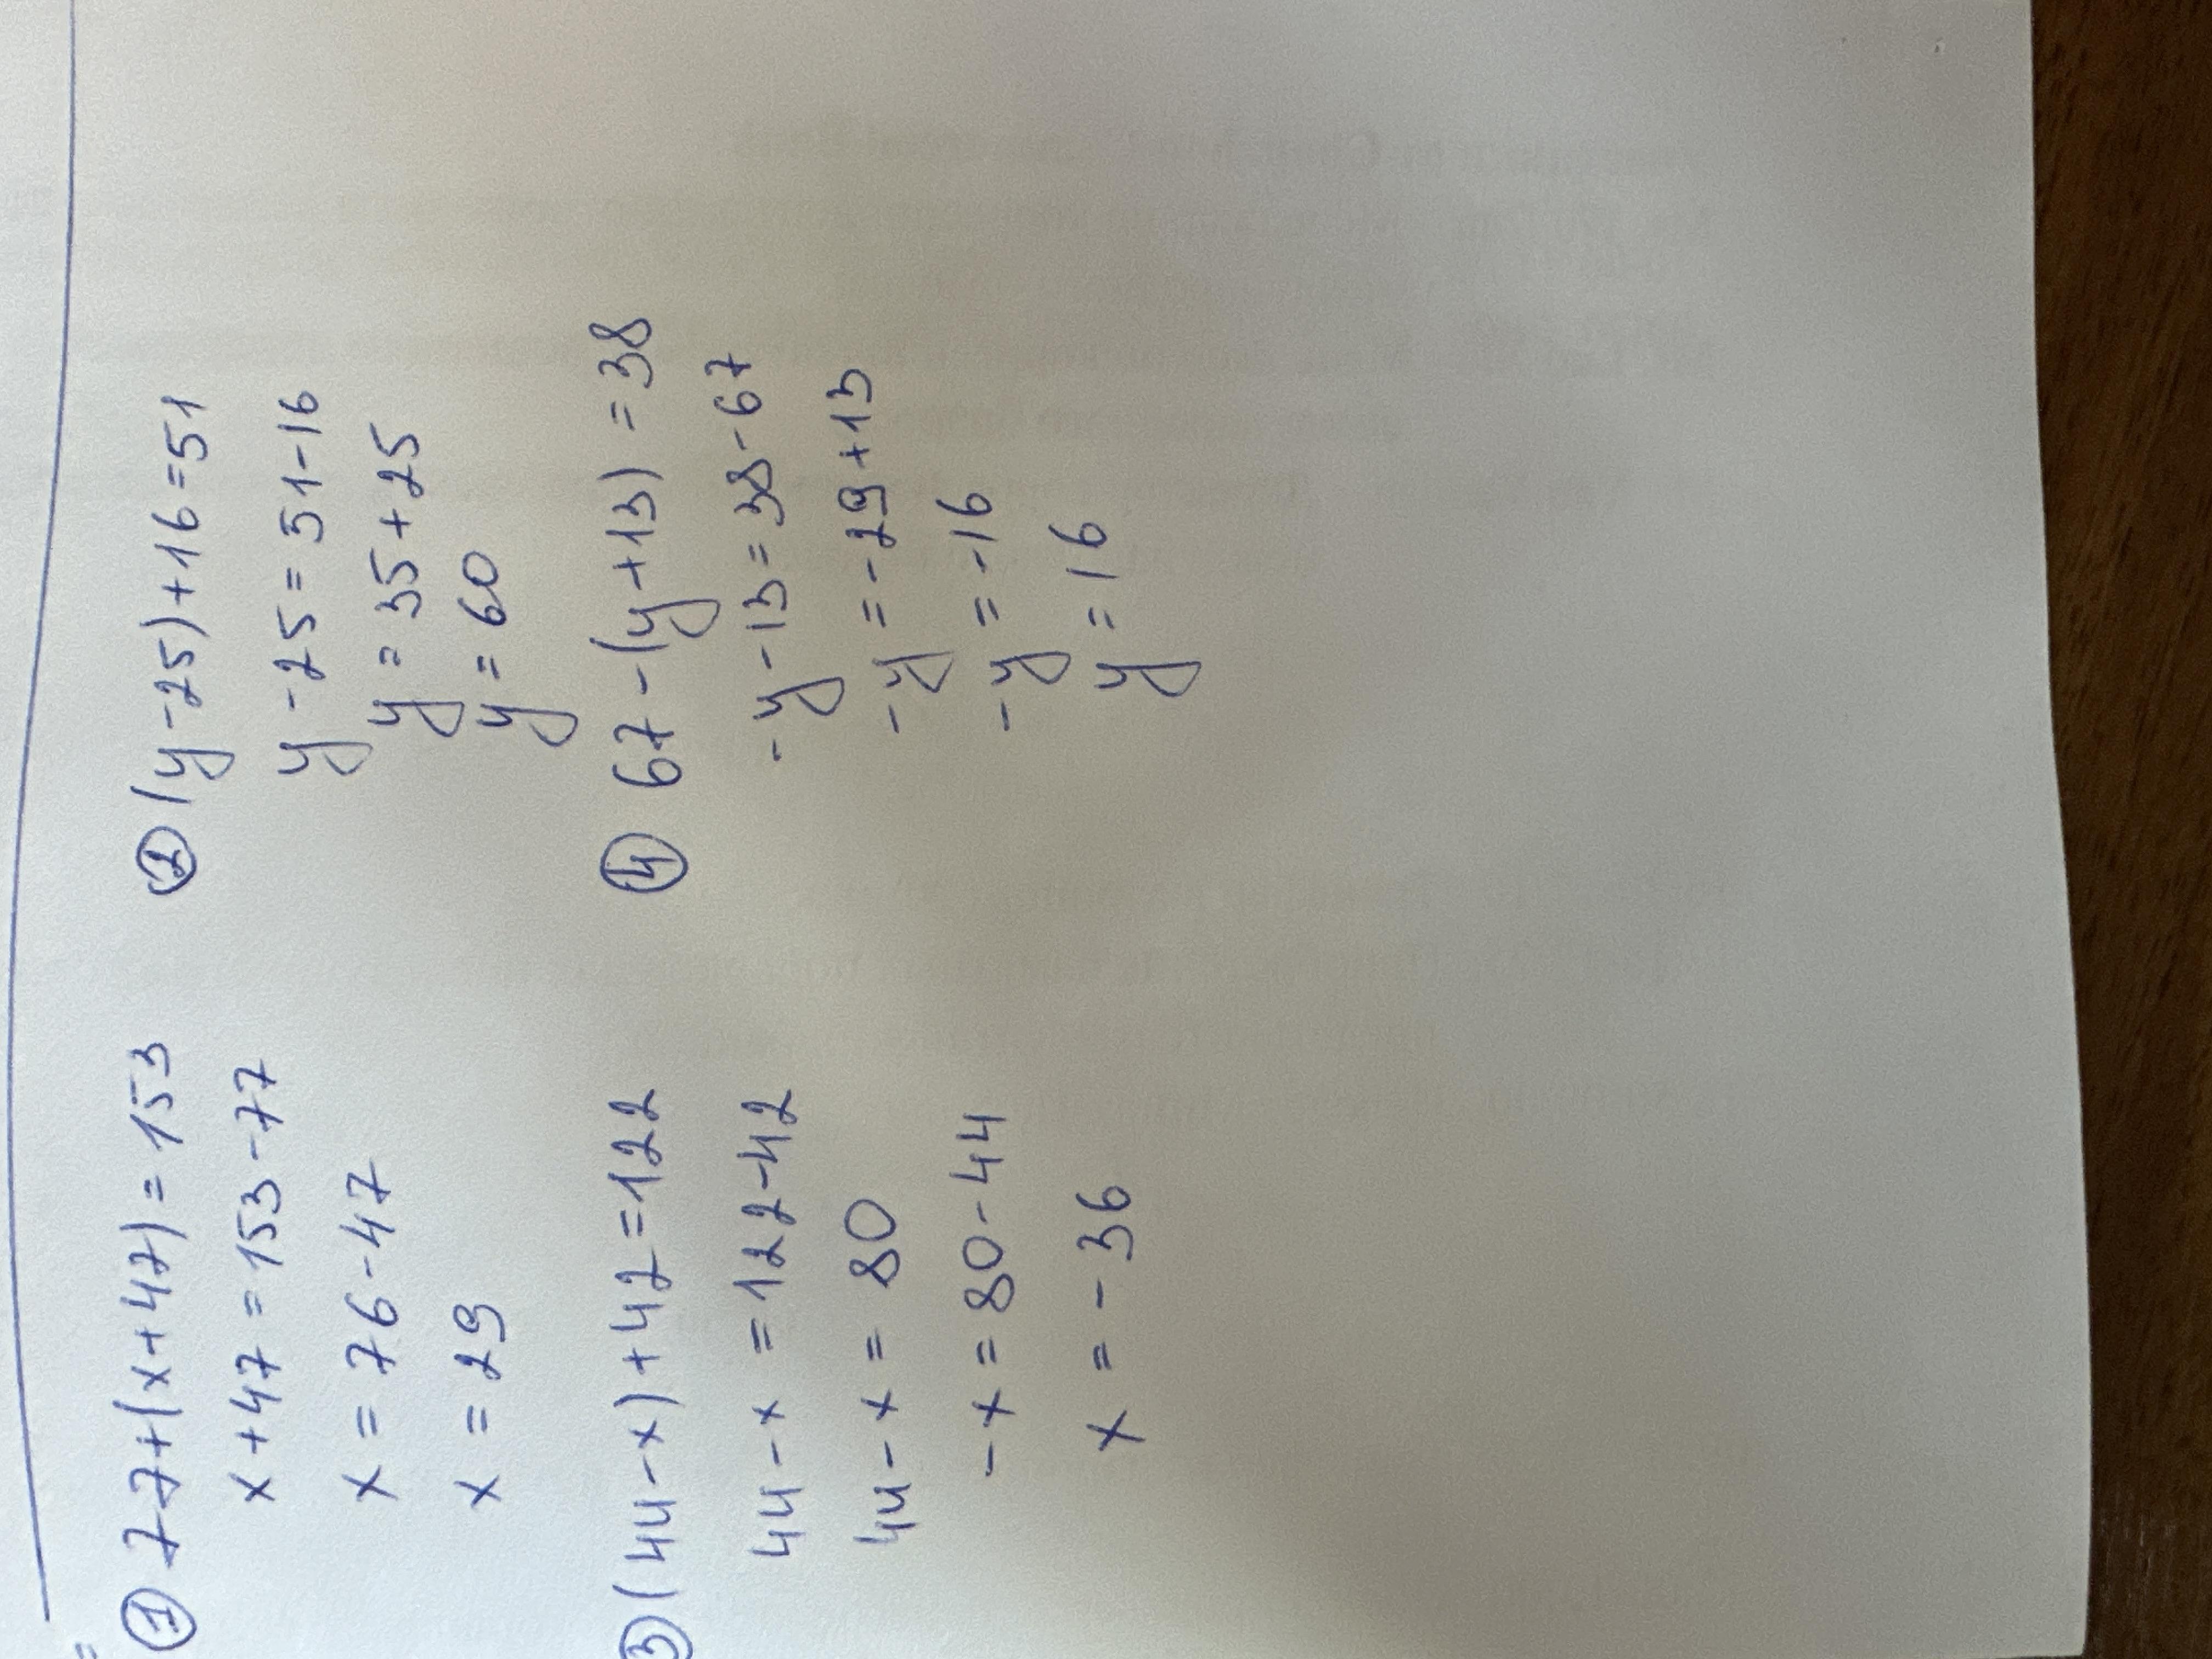 ① 77+(x+47)=153
x+47=153-77
x=76-47
x=29
② (y-25)+16=51
y-25=51-16
y=35+25
y=60
③ (44-x)+42=122
44-x=122-42
44-x=80
-x=80-44
x=-36
④ 67-(y+13)=38
-y-13=38-67
-y=-29+13
-y=-16
y=16